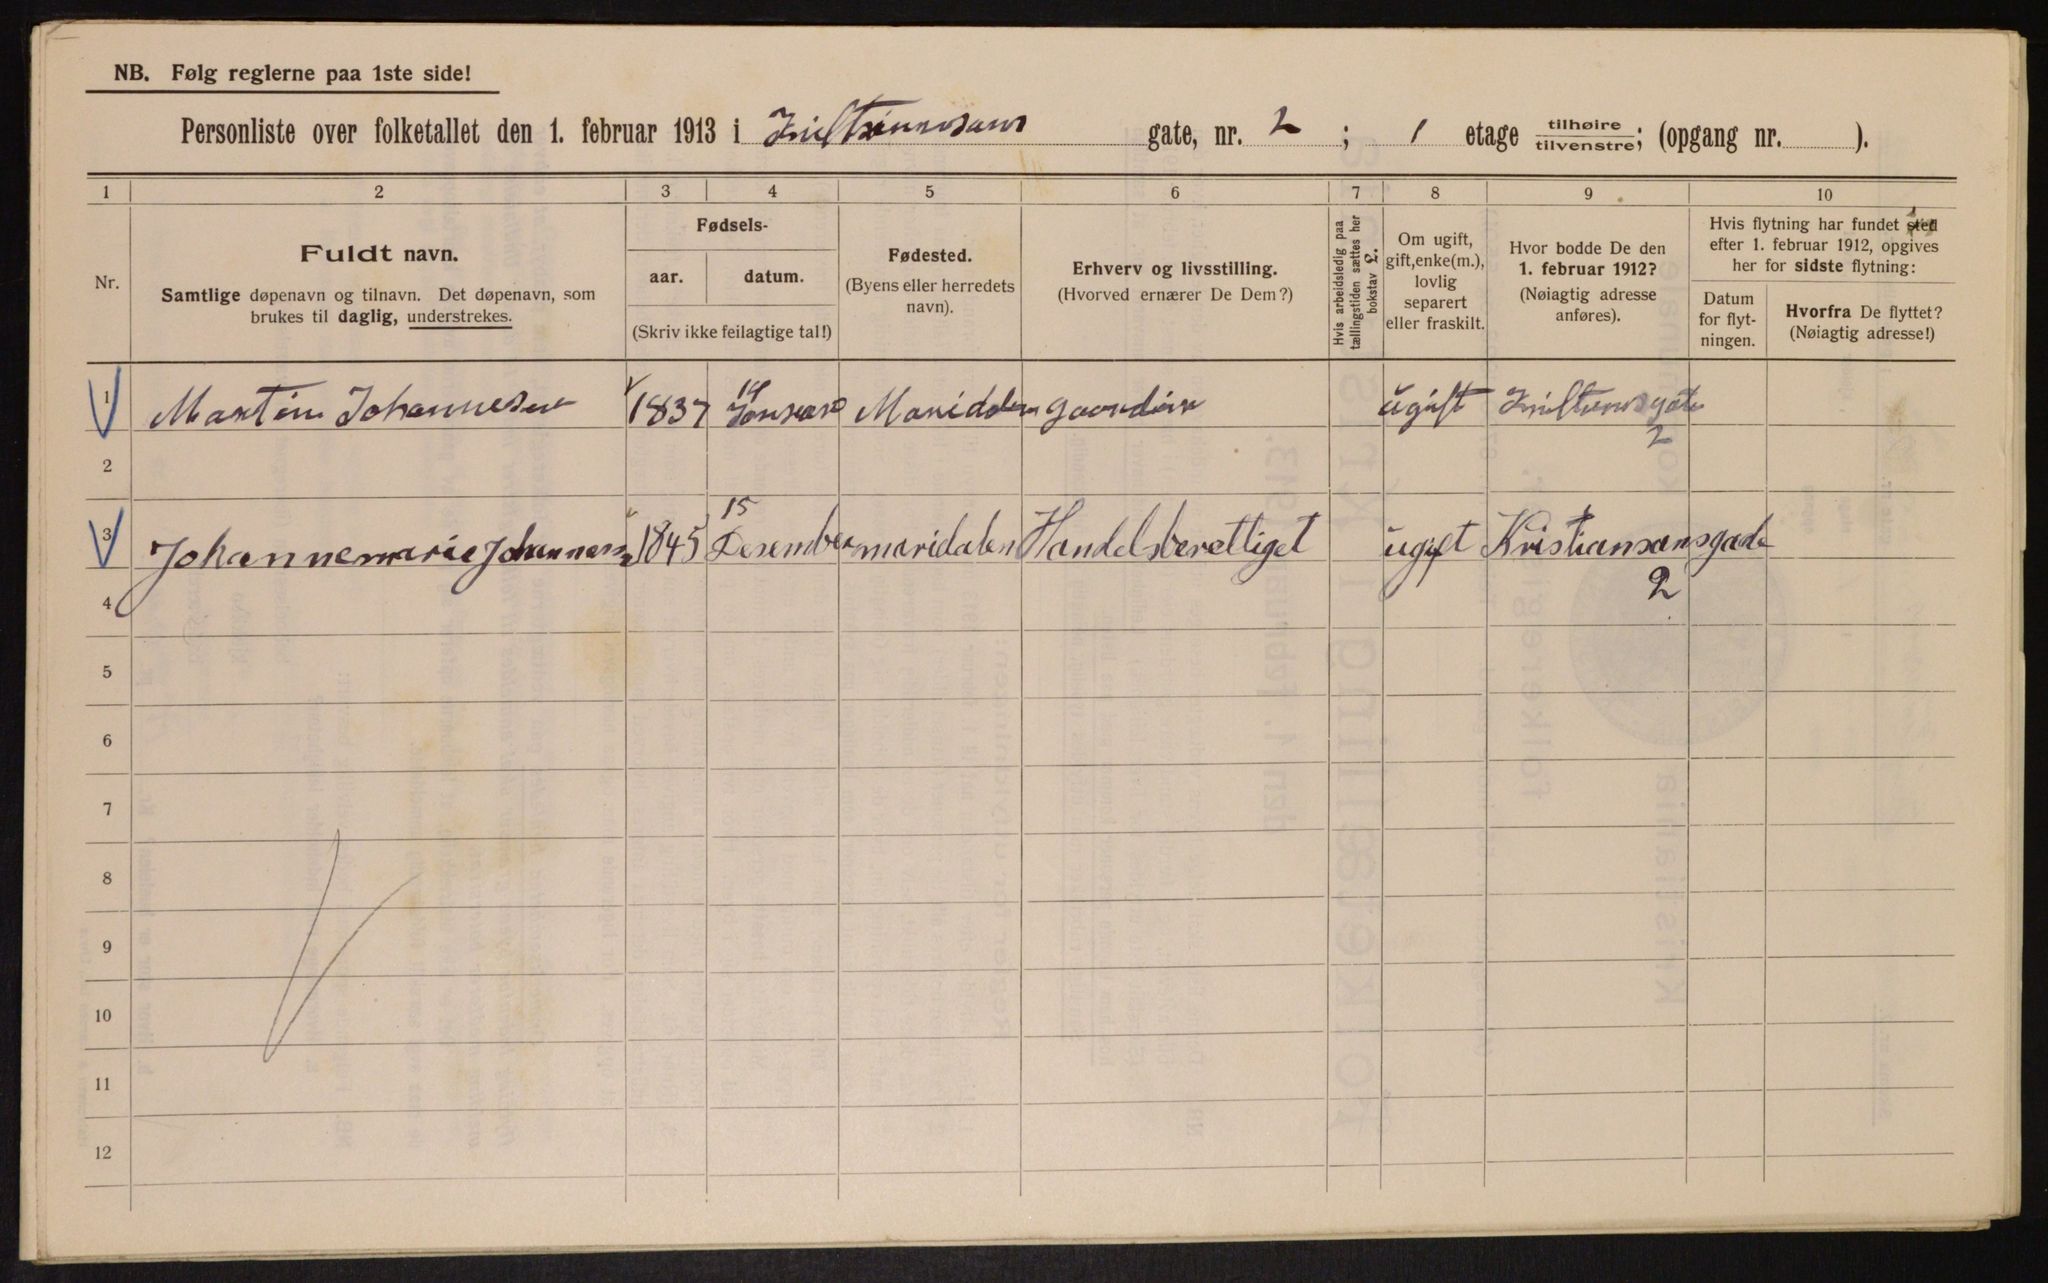 NB. Følg reglerne paa 1ste side!
Personliste over folketallet den 1. februar 1913 i gate, nr. 2 ; 1 etage tilhøire tilvenstre; (opgang nr. ).
1 2 3 4 5 6 7 8 9 10
Nr.
Fuldt navn.
Samtlige døpenavn og tilnavn. Det døpenavn, som
brukes til daglig, understrekes.
Fødsels-
aar. datum.
(Skriv ikke feilagtige tal!)
Fødested.
(Byens eller herredets
navn).
Erhverv og livsstilling.
(Hvorved ernærer De Dem?)
Hvis arbeidsledig paa
tællingstiden sættes her
bokstav L.
Om ugift,
gift, enke(m.),
lovlig
separert
eller fraskilt.
Hvor bodde De den
1. februar 1912?
(Nøiagtig adresse
anføres).
Hvis flytning har fundet sted
efter 1. februar 1912, opgives
her for sidste flytning:
Datum
for flyt-
ningen.
Hvorfra De flyttet?
(Nøiagtig adresse!)
14
1 Martin Johannesen 1837 ugift
2
2
15
3 Johannemarie Johannesen 1845 Desember maridalen Handelsberettiget ugift Kristiansansgade
4 2
5
6
7
8
9
10
11
12